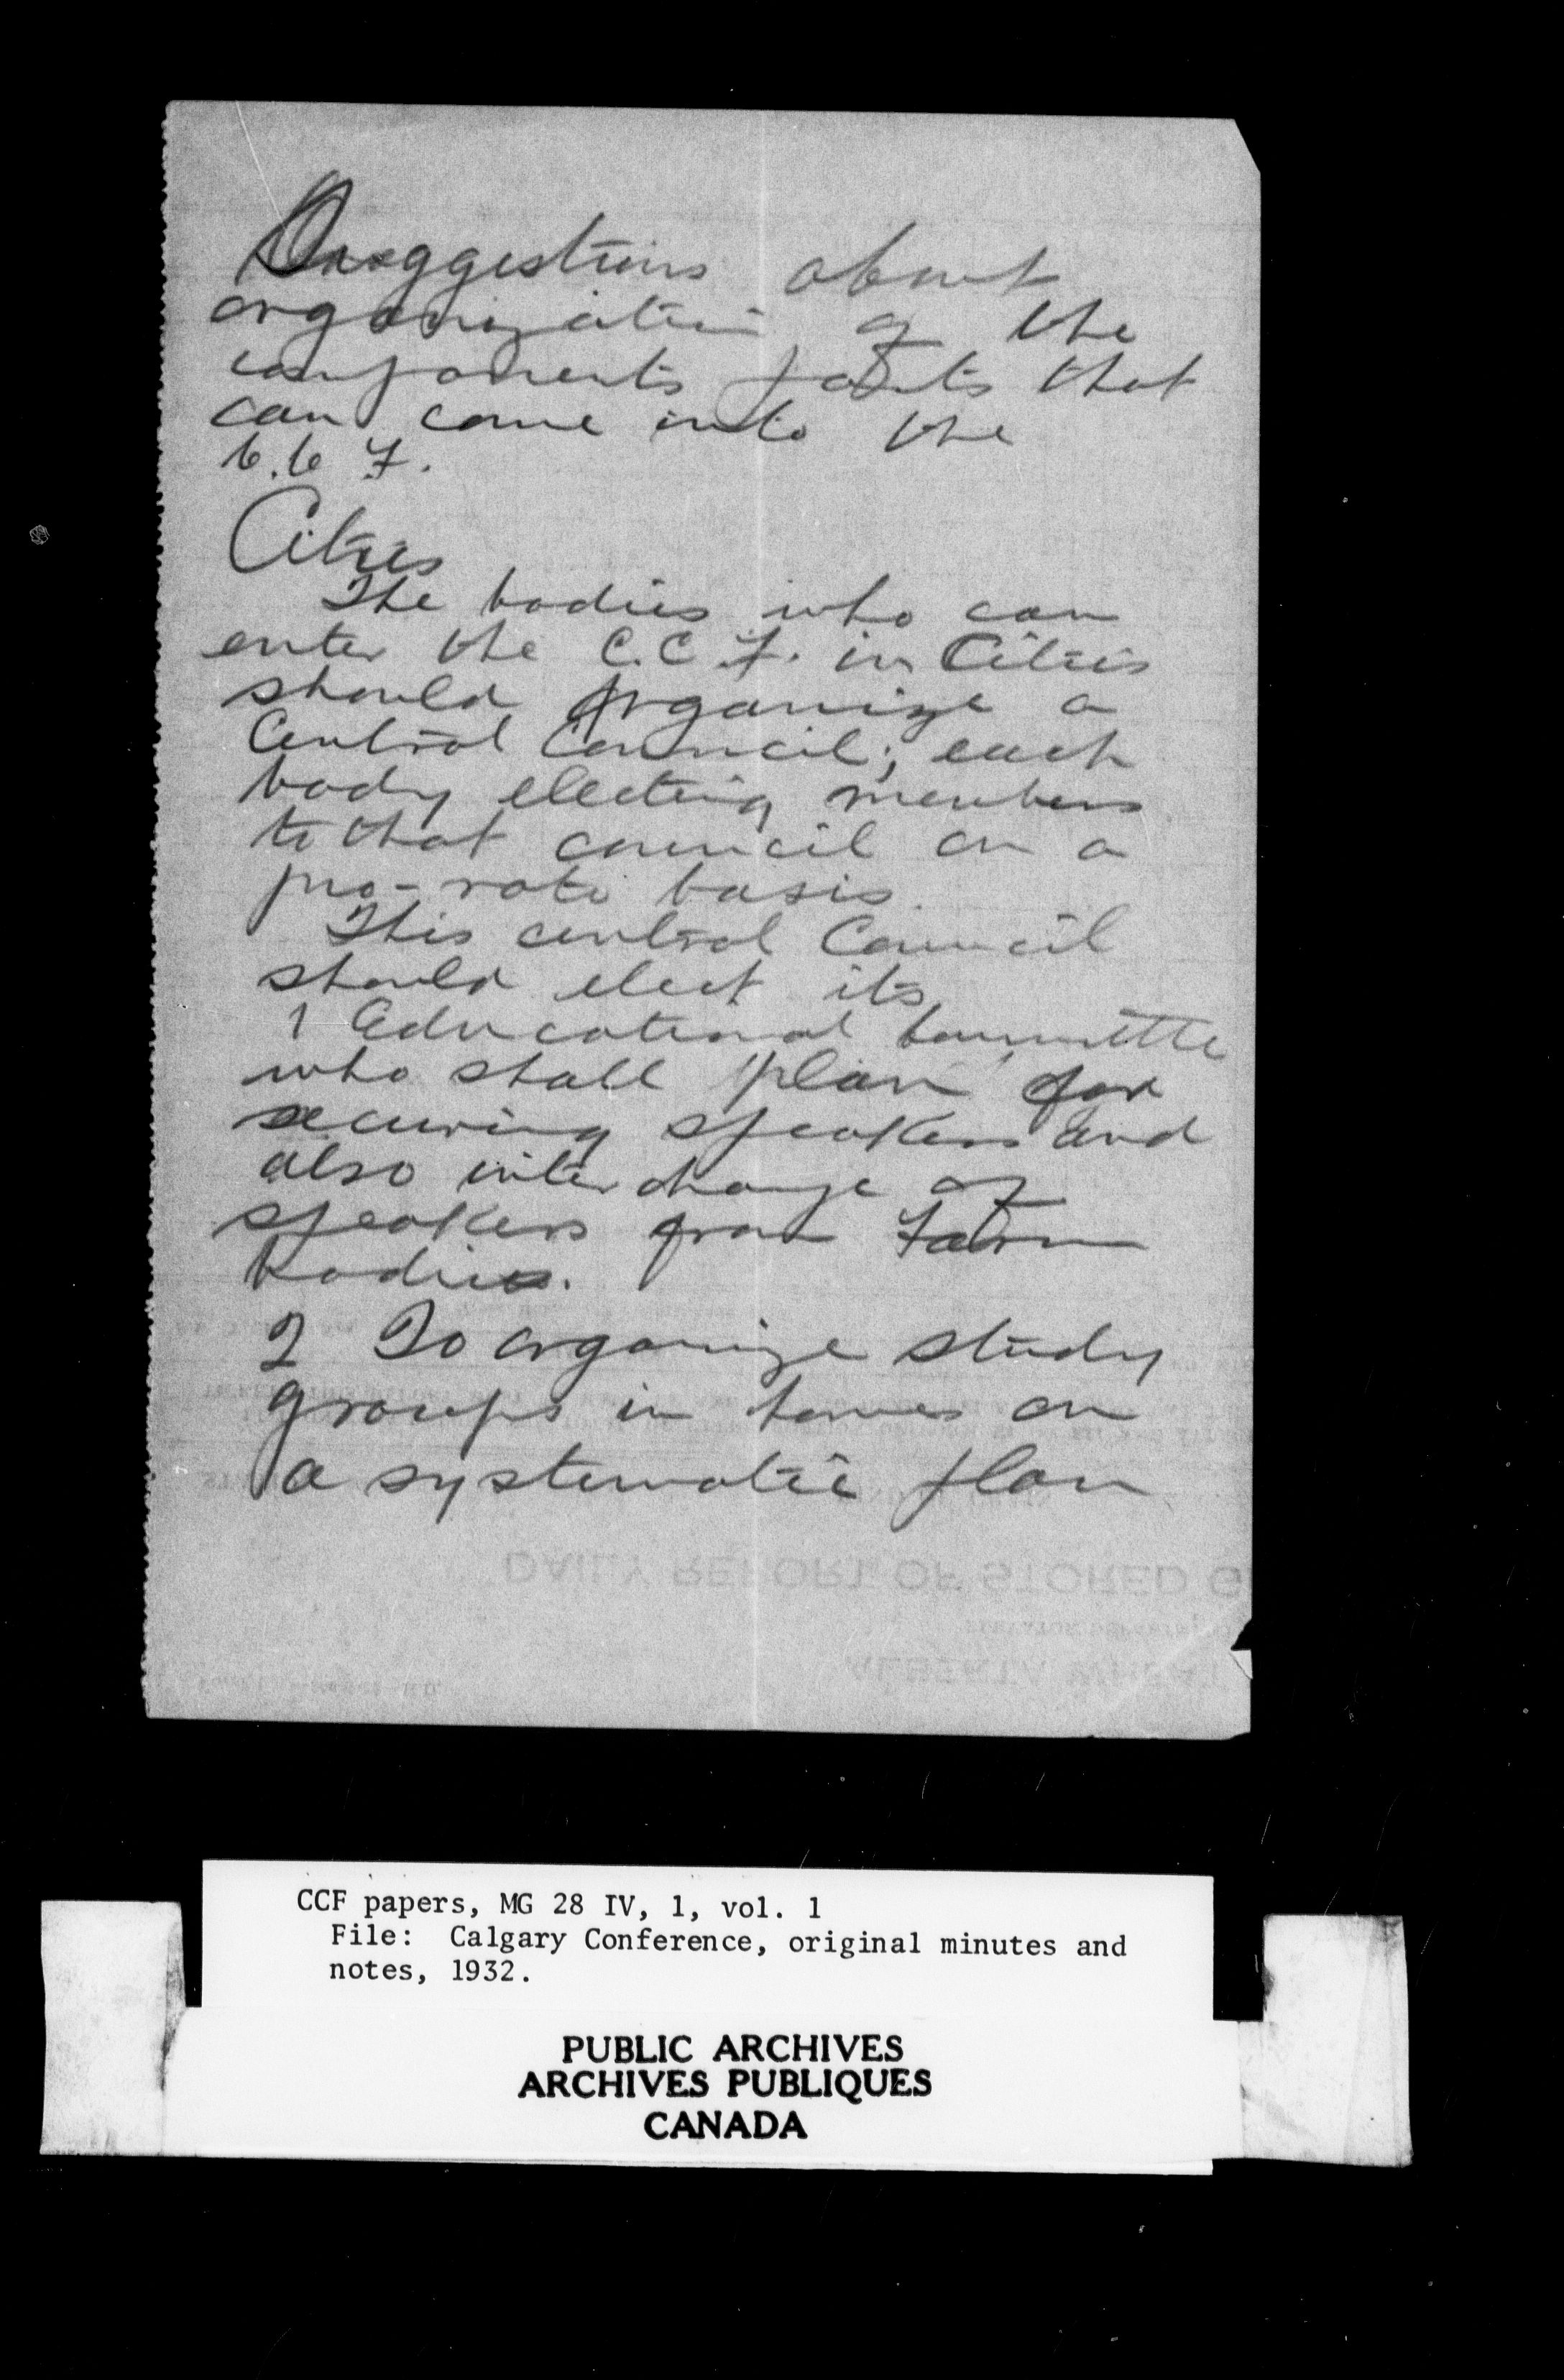 Suggestions about
organization of the
components parts that
can come into the
C.C F.
Cities
The bodies who can
enter the C.C F. in Cities
should organize a
Central Council; each
body electing members
to that council on a
pro-rata basis.
This central Council
should elect its
1 Educational Committe
who shall plan for
securing speakers and
also inter change of
speakers from Farm
bodies.
2 To organize study
groups in homes on
a systematic plan
DAILY REPORT OF STORED G
ALBERTA WHEAT
CCF papers, MG 28 IV, 1, vol. 1
File: Calgary Conference, original minutes and
notes, 1932.
PUBLIC ARCHIVES
ARCHIVES PUBLIQUES
CANADA